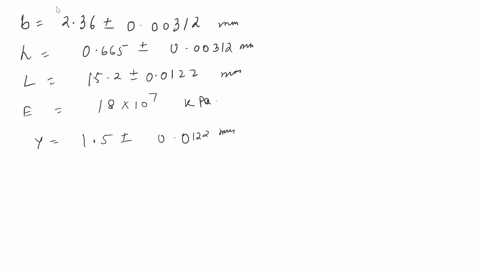 b = 2.36 ± 0.00312 mm
h = 0.665 ± 0.00312 mm
L = 15.2 ± 0.0122 mm
E = 18 × 10⁷ KPa
Y = 1.5 ± 0.0122 mm